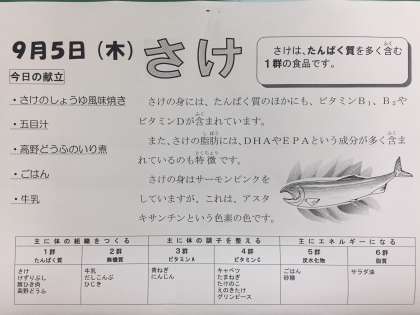 9月5日（木）
さけ
さけは、たんぱく質を多く含む
1群の食品です。
今日の献立
・さけのしょうゆ風味焼き
・五目汁
・高野どうふのいり煮
・ごはん
・牛乳
さけの身には、たんぱく質のほかにも、ビタミンB₁、B₂や
ビタミンDが含まれています。
また、さけの脂肪には、DHAやEPAという成分が多く含ま
れているのも特徴です。
さけの身はサーモンピンクを
していますが、これは、アスタ
キサンチンという色素の色です。
主に体の組織をつくる 主に体の調子を整える 主にエネルギーになる
1群 2群 3群 4群 5群 6群
たんぱく質 無機質 ビタミンA ビタミンC 炭水化物 脂質
さけ 牛乳 青ねぎ キャベツ ごはん サラダ油
けずりぶし だしこんぶ にんじん たまねぎ 砂糖
豚ひき肉 ひじき たけのこ
高野どうふ えのきたけ
グリンピース